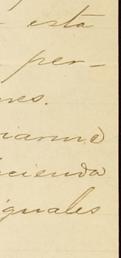 está
per-
nes.
viarme
hacienda
iguales